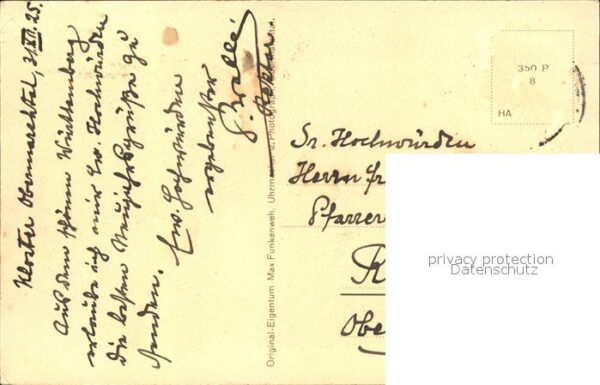 Kloster Obermarchtal, 31.XII.25.
Aus dem schönen Württemberg
erlaube ich mir Ew. Hochwürden
die besten Neujahrsgrüße zu
senden.
Ew. Hochwürden
ergebenster
Rektor.
Original-Eigentum Max Funkenweh, Uhrmacher u. Photograph
350 P
8
HA
Sr. Hochwürden
Herrn
Pfarrer
privacy protection
Datenschutz